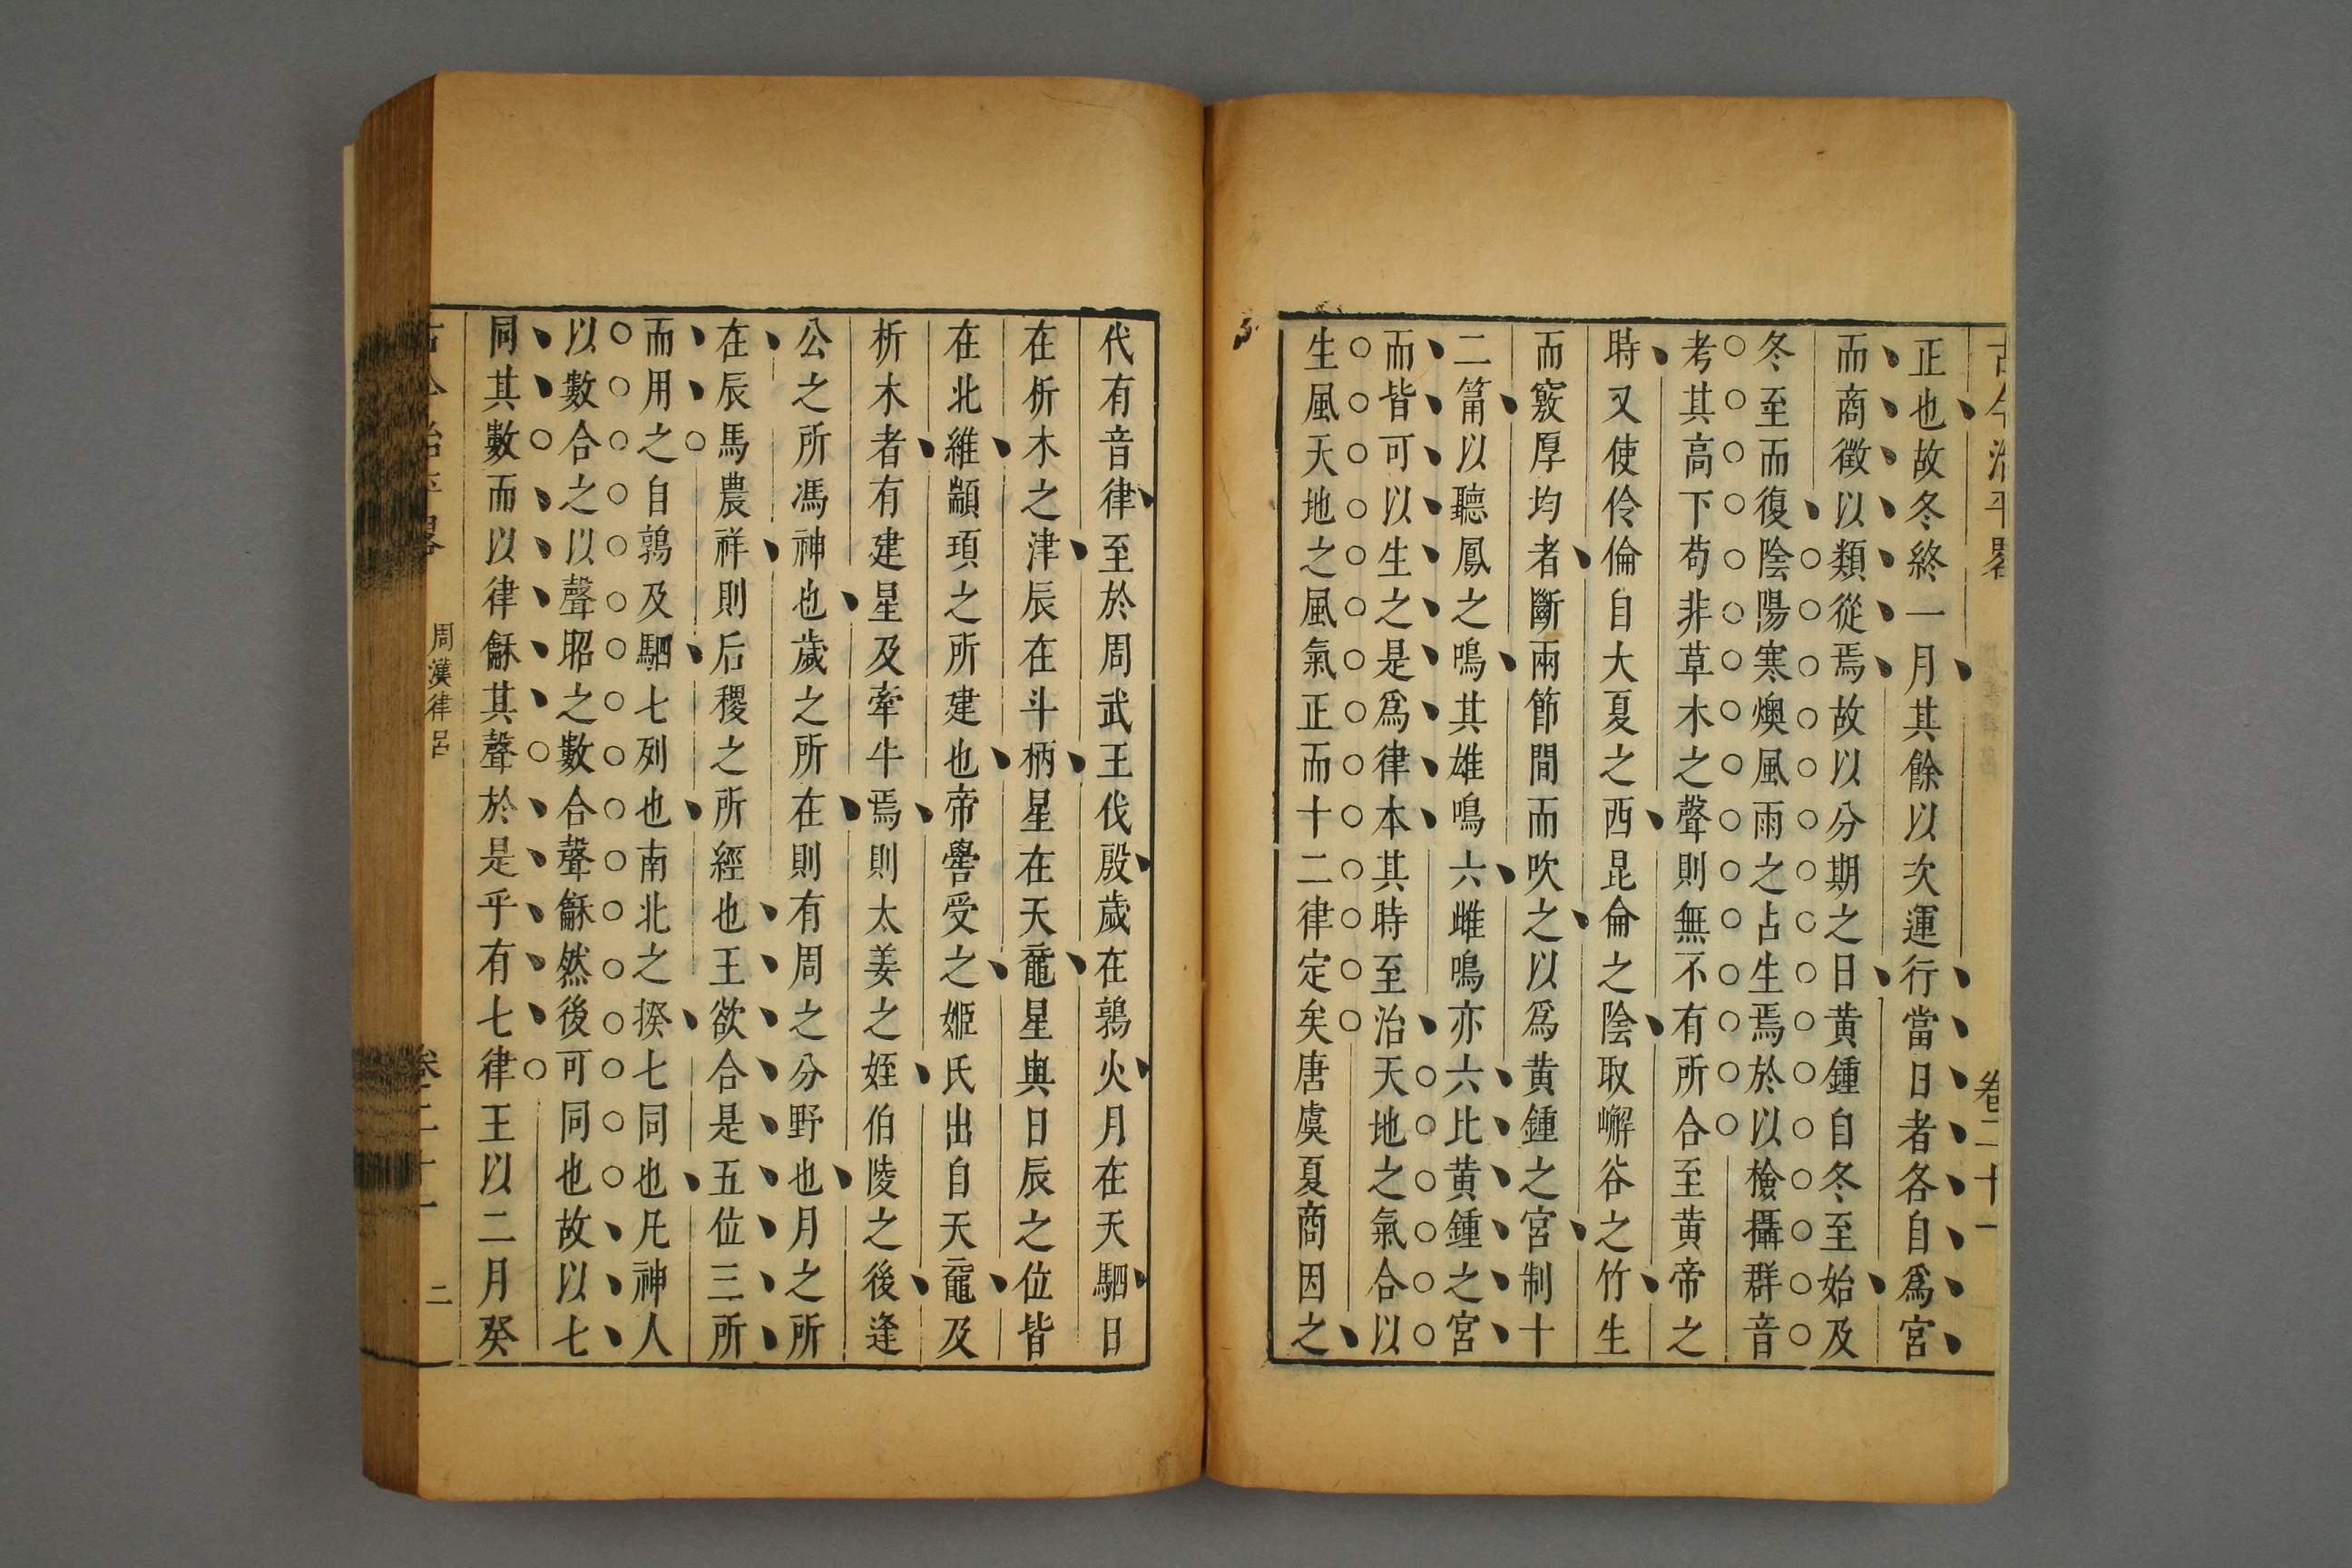 古今治平畧 卷二十一
正也故冬終一月其餘以次運行當日者各自爲宮
而商徵以類從焉故以分期之日黄鍾自冬至始及
冬至而復陰陽寒燠風雨之占生焉於以檢攝群音
考其高下苟非草木之聲則無不有所合至黄帝之
時又使伶倫自大夏之西昆侖之陰取嶰谷之竹生
而竅厚均者斷兩節間而吹之以爲黄鍾之宮制十
二篇以聽鳳之鳴其雄鳴六雌鳴亦六比黄鍾之宮
而皆可以生之是爲律本其時至治天地之氣合以
生風天地之風氣正而十二律定矣唐虞夏商因之
代有音律至於周武王伐殷歲在鶉火月在天駟日
在析木之津辰在斗柄星在天黿星與日辰之位皆
在北維顓頊之所建也帝嚳受之姬氏出自天黿及
析木者有建星及牽牛焉則太姜之姪伯陵之後逢
公之所馮神也歲之所在則有周之分野也月之所
在辰馬農祥則后稷之所經也王欲合是五位三所
而用之自鶉及駟七列也南北之揆七同也凡神人
以數合之以聲昭之數合聲龢然後可同也故以七
同其數而以律龢其聲於是乎有七律王以二月癸
古今治平畧 周漢律呂 卷二十一 二